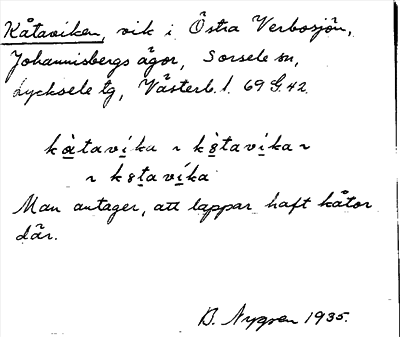 Kåtaviken, vik i Östra Verbosjön,
Johannisbergs ägor, Sorsele sn,
Lycksele tg, Västerb. l. 69 G. 42.
kàtavíka ~ k8̀tavíka ~
~ k8tavíka
Man antager, att lappar haft kåtor
där.
B. Nygren 1935.